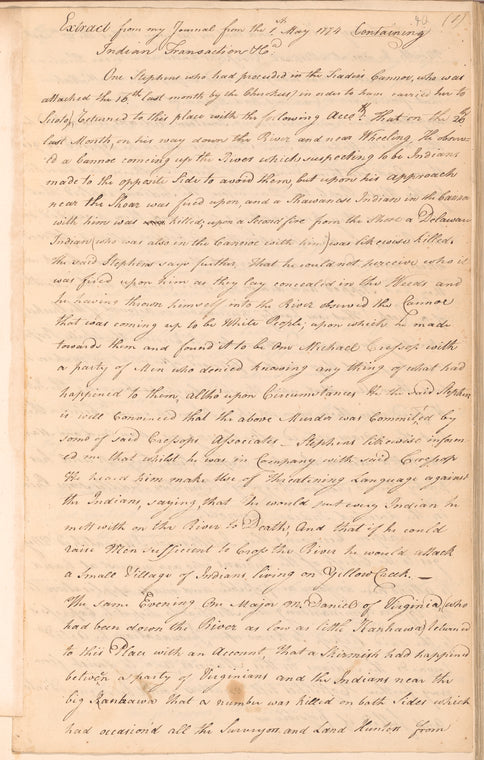 (1)
Extract from my Journal from the 1st May 1774 Containing
Indian Transactions &ca.
One Stephens who had proceeded in the Traders Cannoe, who was
attacked the 16th last month by the Cherokees, in order to have carried her to
Sioto, Returned to this place with the following Acct. That on the 26th
last Month, on his way down the River and near Wheeling, He observ-
ed a Cannoe comeing up the River which suspecting to be Indians
made to the opposite Side to avoid them, but upon his approach
near the Shoar was fired upon, and a Shawanese Indian in the Cannoe
with him was killed; upon a Second fire from the Shore a Delaware
Indian (who was also in the Cannoe with him) was likewise killed.
the said Stephens says further, that he could not perceive who it
was fired upon him as they lay concealed in the Weeds and
he having thrown himself into the River observed the Cannoe
that was coming up to be White People; upon which he made
towards them and found it to be One Michael Cressop with
a party of Men who denied knowing any thing of what had
happined to them, altho' upon Circumstances He the said Stephens
is well Convinced that the above Murder was Commited by
some of said Cressops Associates _ Stephens likewise inform
ed me, that whilst he was in Company with said Cressop
He heard him make Use of Threatening Language against
the Indians, saying, that he would put every Indian he
mett with on the River to Death; And that if he could
raise Men sufficient to Cross the River he would attack
a Small Village of Indians living on Yellow Creek. _
The same Evening One Major McDaniel of Virginia (who
had been down the River as low as little Kanhawa) returned
to this Place with an Account, that a Skirmish had happened
between a party of Virginians and the Indians near the
big Kanhawa that a number was killed on both Sides which
had occasion'd all the Surveyors and Land Hunters from